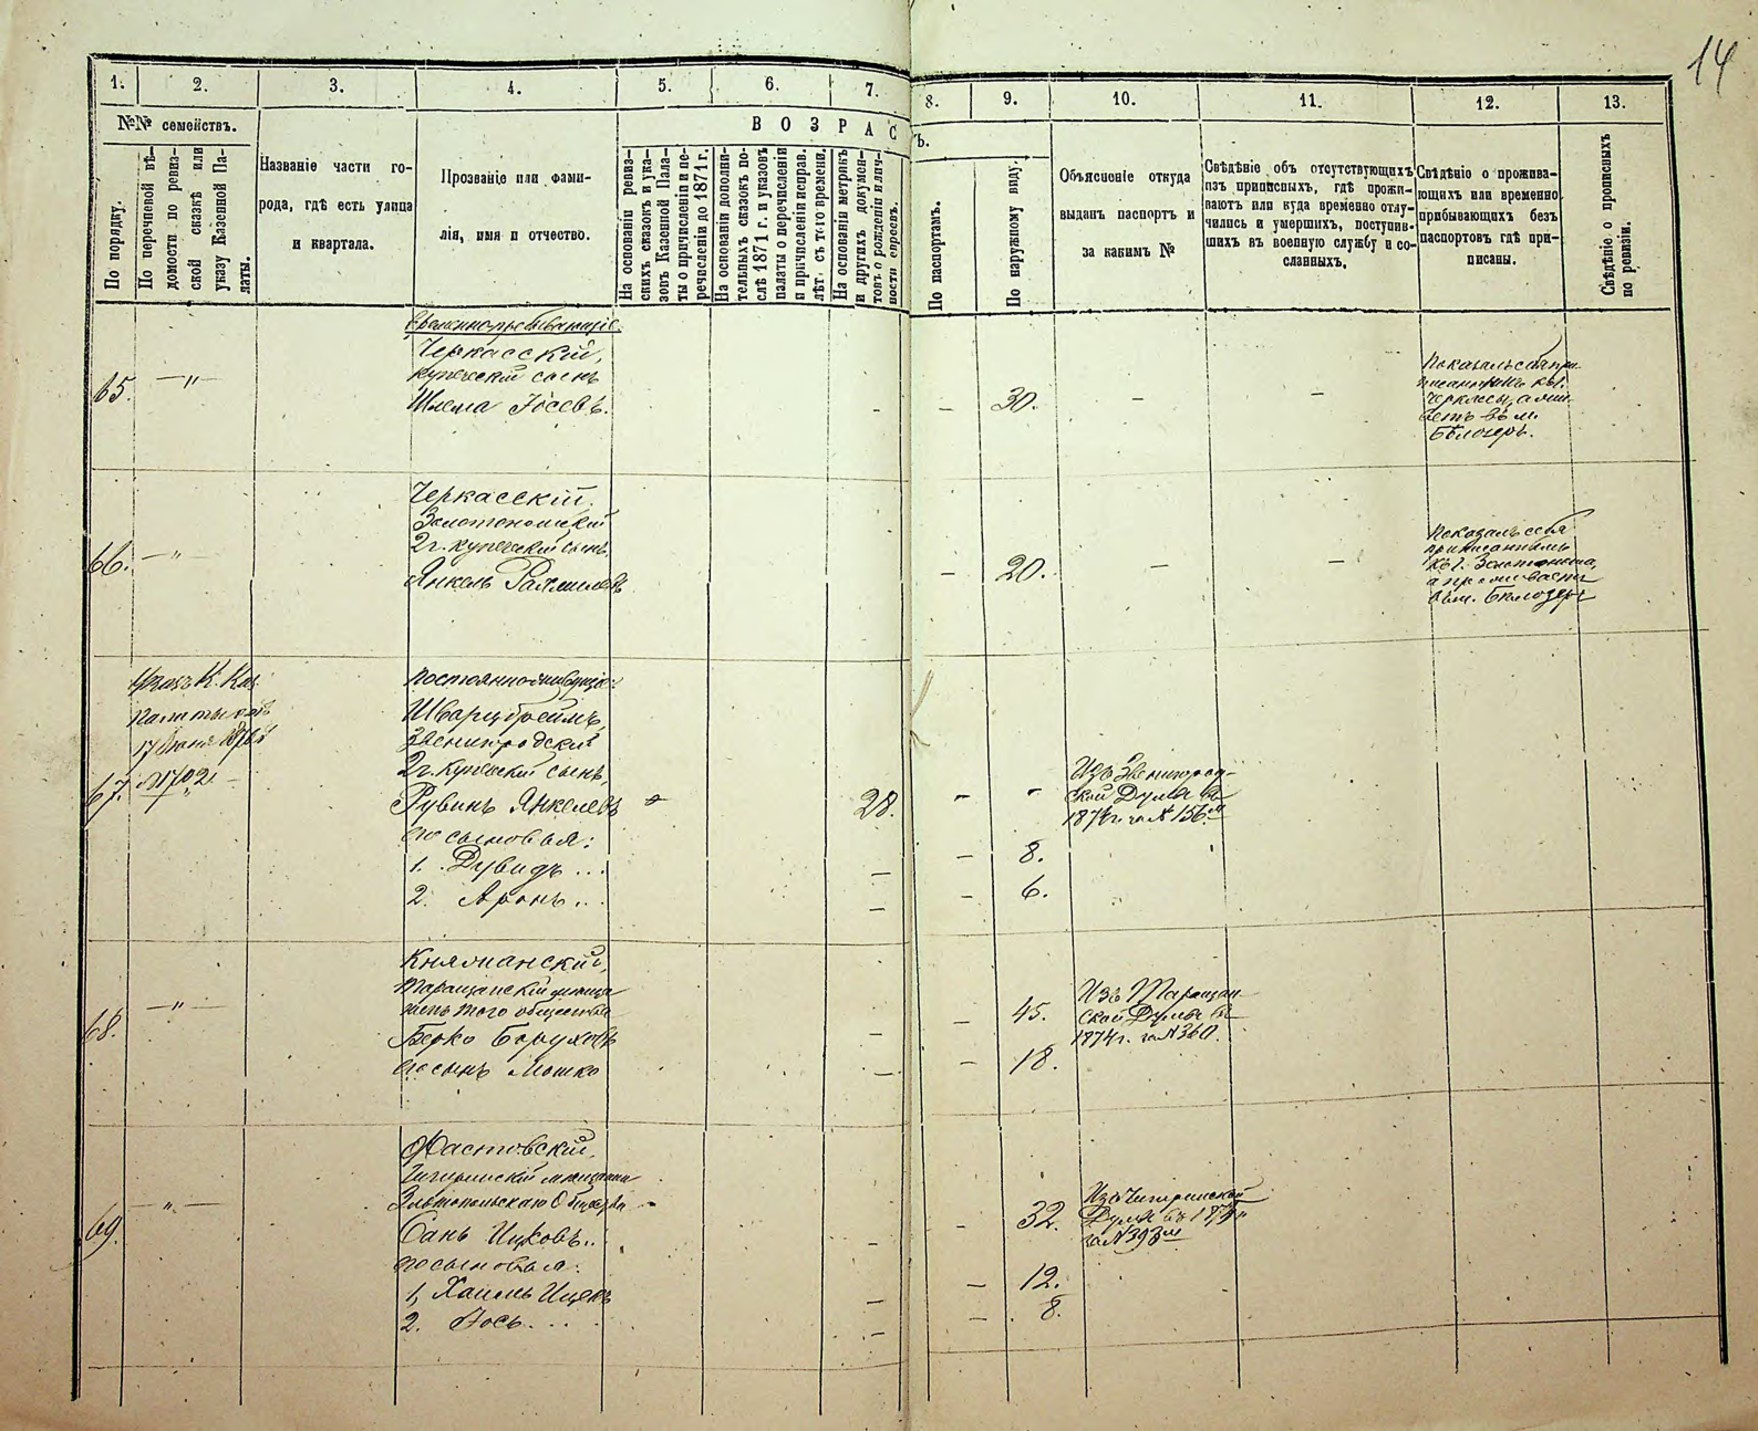 14
1. 2. 3. 4. 5. 6. 7. 8. 9. 10. 11. 12. 13.
№№ семействъ.
ВОЗРАСТЪ.
По порядку.
По перечневой вѣ-
домости по ревиз-
ской сказкѣ или
указу Казенной Па-
латы.
Названіе части го-
рода, гдѣ есть улица
и квартала.
Прозваніе или фами-
лія, имя и отчество.
На основаніи ревиз-
скихъ сказокъ и ука-
зовъ Казенной Пала-
ты о причисленіи и пе-
речисленіи до 1871 г.
На основаніи дополни-
тельныхъ сказокъ по-
слѣ 1871 г. и указовъ
палаты о перечисленіи
и причисленіи исправ.
лѣт. съ того времени.
На основаніи метрикъ
и другихъ докумен-
товъ о рожденіи и лич-
ности евреевъ.
По паспортамъ.
По наружному виду.
Объясненіе откуда
выданъ паспортъ и
за какимъ №
Свѣдѣніе объ отсутствующихъ
изъ приписныхъ, гдѣ прожи-
ваютъ или куда временно отлу-
чились и умершихъ, поступив-
шихъ въ военную службу и со-
сланныхъ.
Свѣдѣніе о прожива-
ющихъ или временно
прибывающихъ безъ
паспортовъ гдѣ при-
писаны.
Свѣдѣніе о прописныхъ
по ревизіи.
Черкасскій,
купеческій сынъ
65. — " — Шлема Іосевъ. - — 30. — —
Показалъ себя при-
писаннымъ къ г.
Черкасы, а жи-
ветъ въ м.
Бѣлозерь.
Черкасскій
Золотоношскій
2 г. купеческій сынъ
66. — " — Янкель — 20. — —
Показалъ себя
приписаннымъ
къ г. Золотоноша,
а проживаетъ
въ м. Бѣлозерь
Указъ К. Каз.
Палаты отъ
17 Іюня
67. № 1702
Постоянно живущіе:
Шварцбреймъ,
Звенигородскій
2 г. купеческій сынъ,
Рувинъ Янкелевъ 28. - -
Изъ Звенигород-
ской Думы въ
1874 г. за № 156.
его сыновья:
1. Дувидъ ... — — 8.
2. Аронъ .. — — 6.
Княжанскій,
Таращанскій мѣща-
нинъ того общества
68. — " — Берко Боруховъ — — 45.
Изъ Таращан-
ской Думы въ
1874 г. за № 360.
его сынъ Мошко — — 18.
Фастовскій,
Чигиринскій мѣщанинъ
Златопольскаго Общества
69. — " — Сань Ицковъ.. — - 32.
Изъ Чигиринской
Думы въ 187
за № 398
его сыновья:
1, Хаимъ Ицекъ — — 12.
2. Іось .... — — 8.